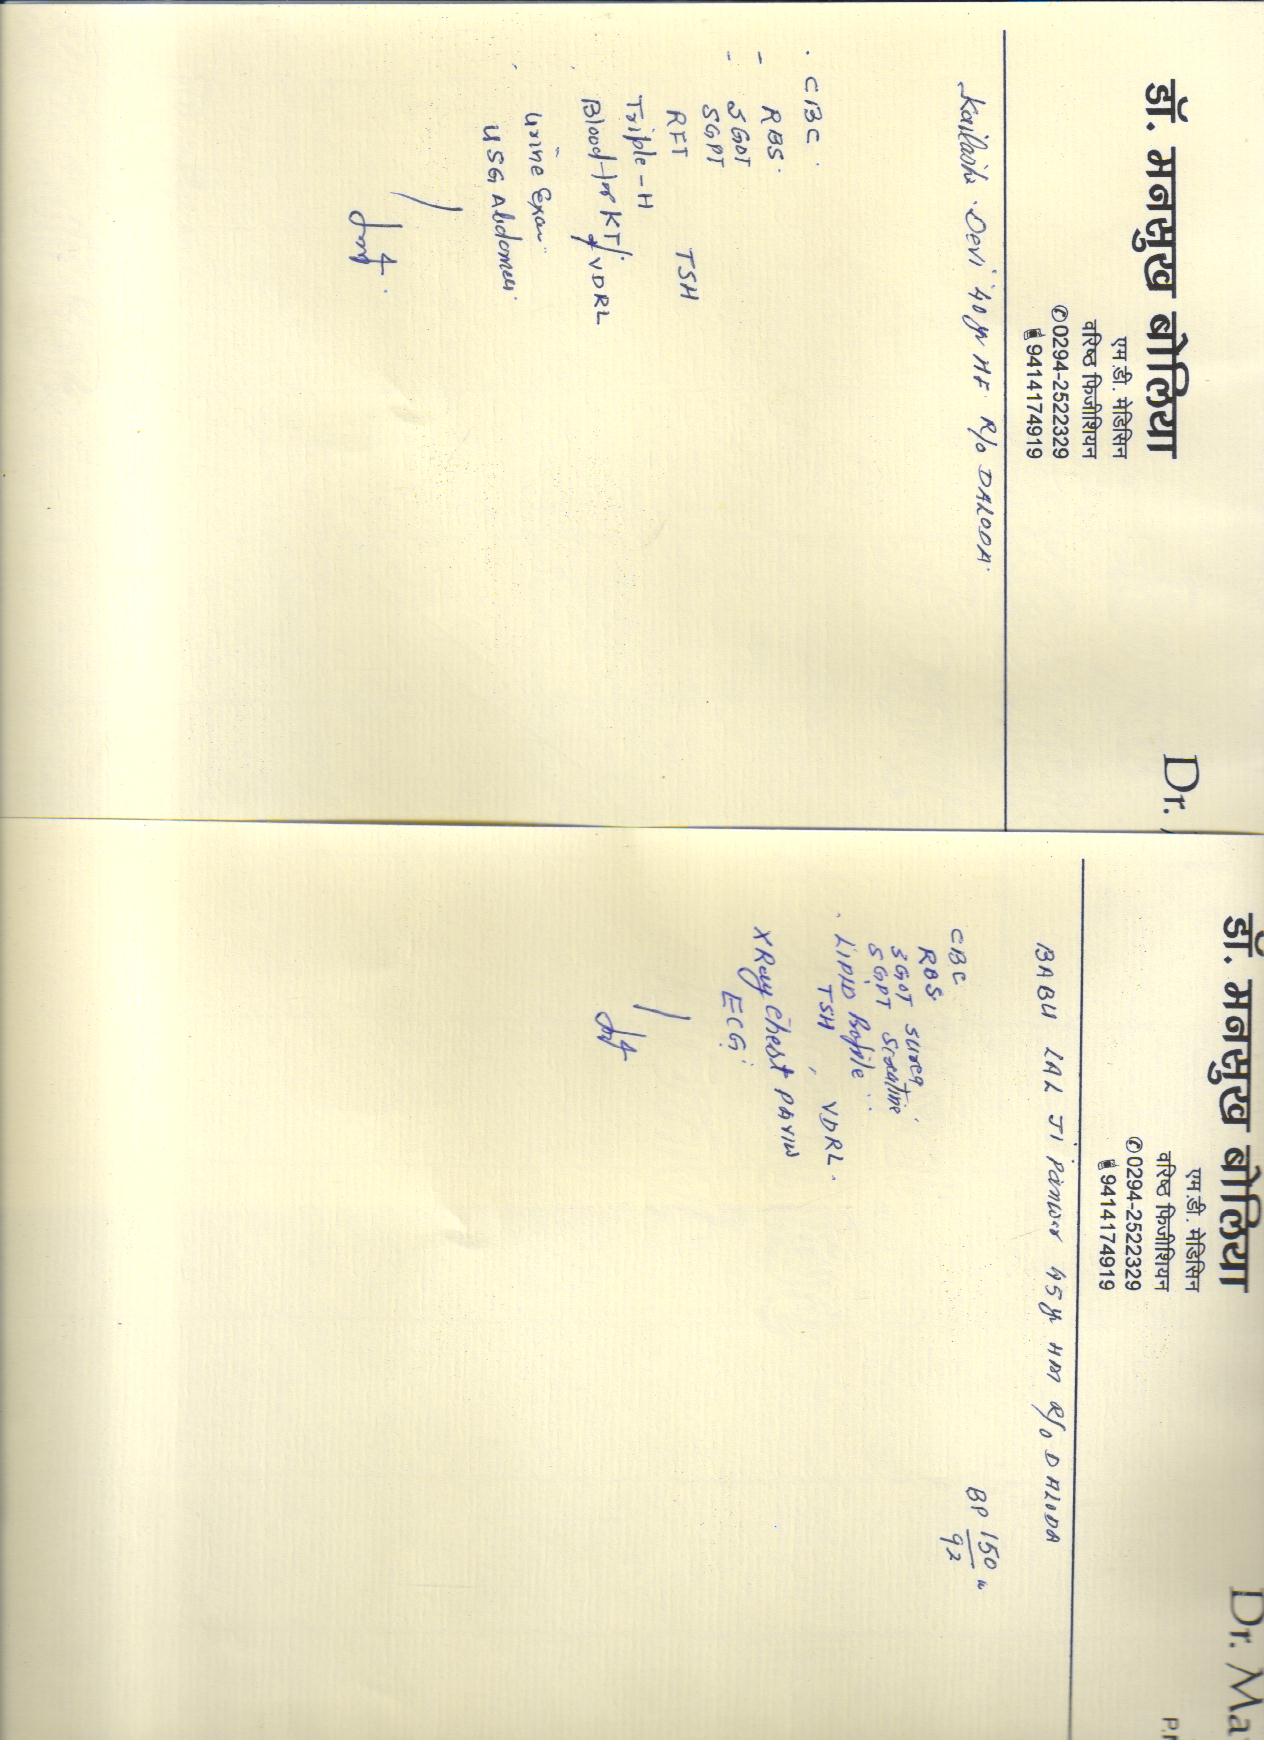 डॉ. मनसुख बोलिया
एम.डी. मेडिसिन
वरिष्ठ फिजीशियन
✆0294-2522329
9414174919
Dr.
Kailashi Devi 40 yr HF. R/o DALODA.
CBC.
RBS.
SGOT
SGPT
RFT TSH
Triple-H
Blood for KT/ VDRL
Urine Exam
USG Abdomen.
डॉ. मनसुख बोलिया
एम.डी. मेडिसिन
वरिष्ठ फिजीशियन
✆0294-2522329
9414174919
Dr. Ma
P.
BABU LAL JI Panwar 45 yr HM R/o DALODA
BP 150
92
CBC
RBS.
SGOT Surea
SGPT Screatine
LIPID Profile
TSH, VDRL.
XRay Chest PA VIW
ECG